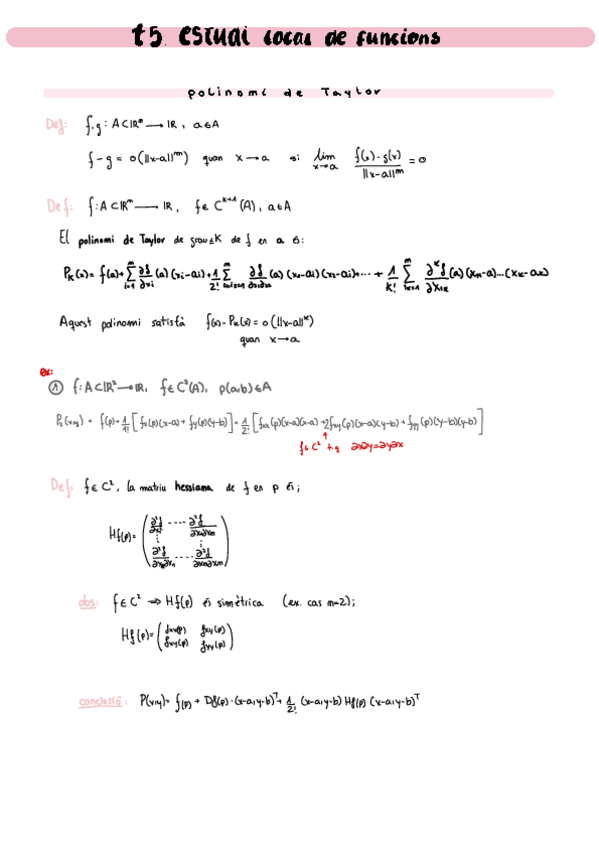 t5. ESTUDI local de funcions
polinomi de Taylor
Def: f,g: A⊂ℝᵐ → ℝ, a∈A
f-g = o(||x-a||ᵐ) quan x→a si lim x→a (f(x)-g(x))/||x-a||ᵐ = 0
Def: f: A⊂ℝᵐ → ℝ, f∈Cᵏ⁺¹(A), a∈A
El polinomi de Taylor de grau≤K de f en a és:
Pₖ(x) = f(a) + Σ ∂f/∂xi (a)(xi-ai) + 1/2! Σ ∂f/∂x1∂x2 (a)(x1-a1)(x2-a2)+...+ 1/K! Σ ∂ᵏf/∂xik (a)(
Aquest polinomi satisfà f(x)-Pₖ(x) = o(||x-a||ᵏ)
quan x→a
ex:
① f: A⊂ℝ² → ℝ, f∈C²(A), p(a,b)∈A
(x,y) = f(p) + 1/1! [fx(p)(x-a) + fy(p)(y-b)] + 1/2! [fxx(p)(x-a)(x-a) + 2fxy(p)(x-a)(y-b) + fyy(p)(y-b)(y-b)]
f∈C² ∂x∂y=∂y∂x
Def: f∈C², la matriu hessiana de f en p és;
Hf(p) = (∂²f/∂x² ---- ∂²f/∂x∂xm
⋮ ⋮
∂²f/∂xm∂x1 .... ∂²f/∂xm∂xm)
obs: f∈C² ⇒ Hf(p) és simètrica (ex. cas m=2);
Hf(p) = (fxx(p) fxy(p)
fxy(p) fyy(p))
conclusió: P(x,y) = f(p) + Df(p)·(x-a,y-b)ᵀ + 1/2! (x-a,y-b) Hf(p) (x-a,y-b)ᵀ